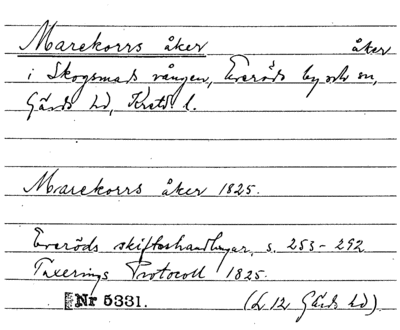 Marekorrs åker åker
i Skogsmads vången, Everöds by och sn,
Gärds hd, Krstd. l.
Marekorrs åker 1825.
Everöds skifteshandlingar, s. 253-292
Taxerings Protocoll 1825.
Nr 5331. (L 12 Gärds hd).